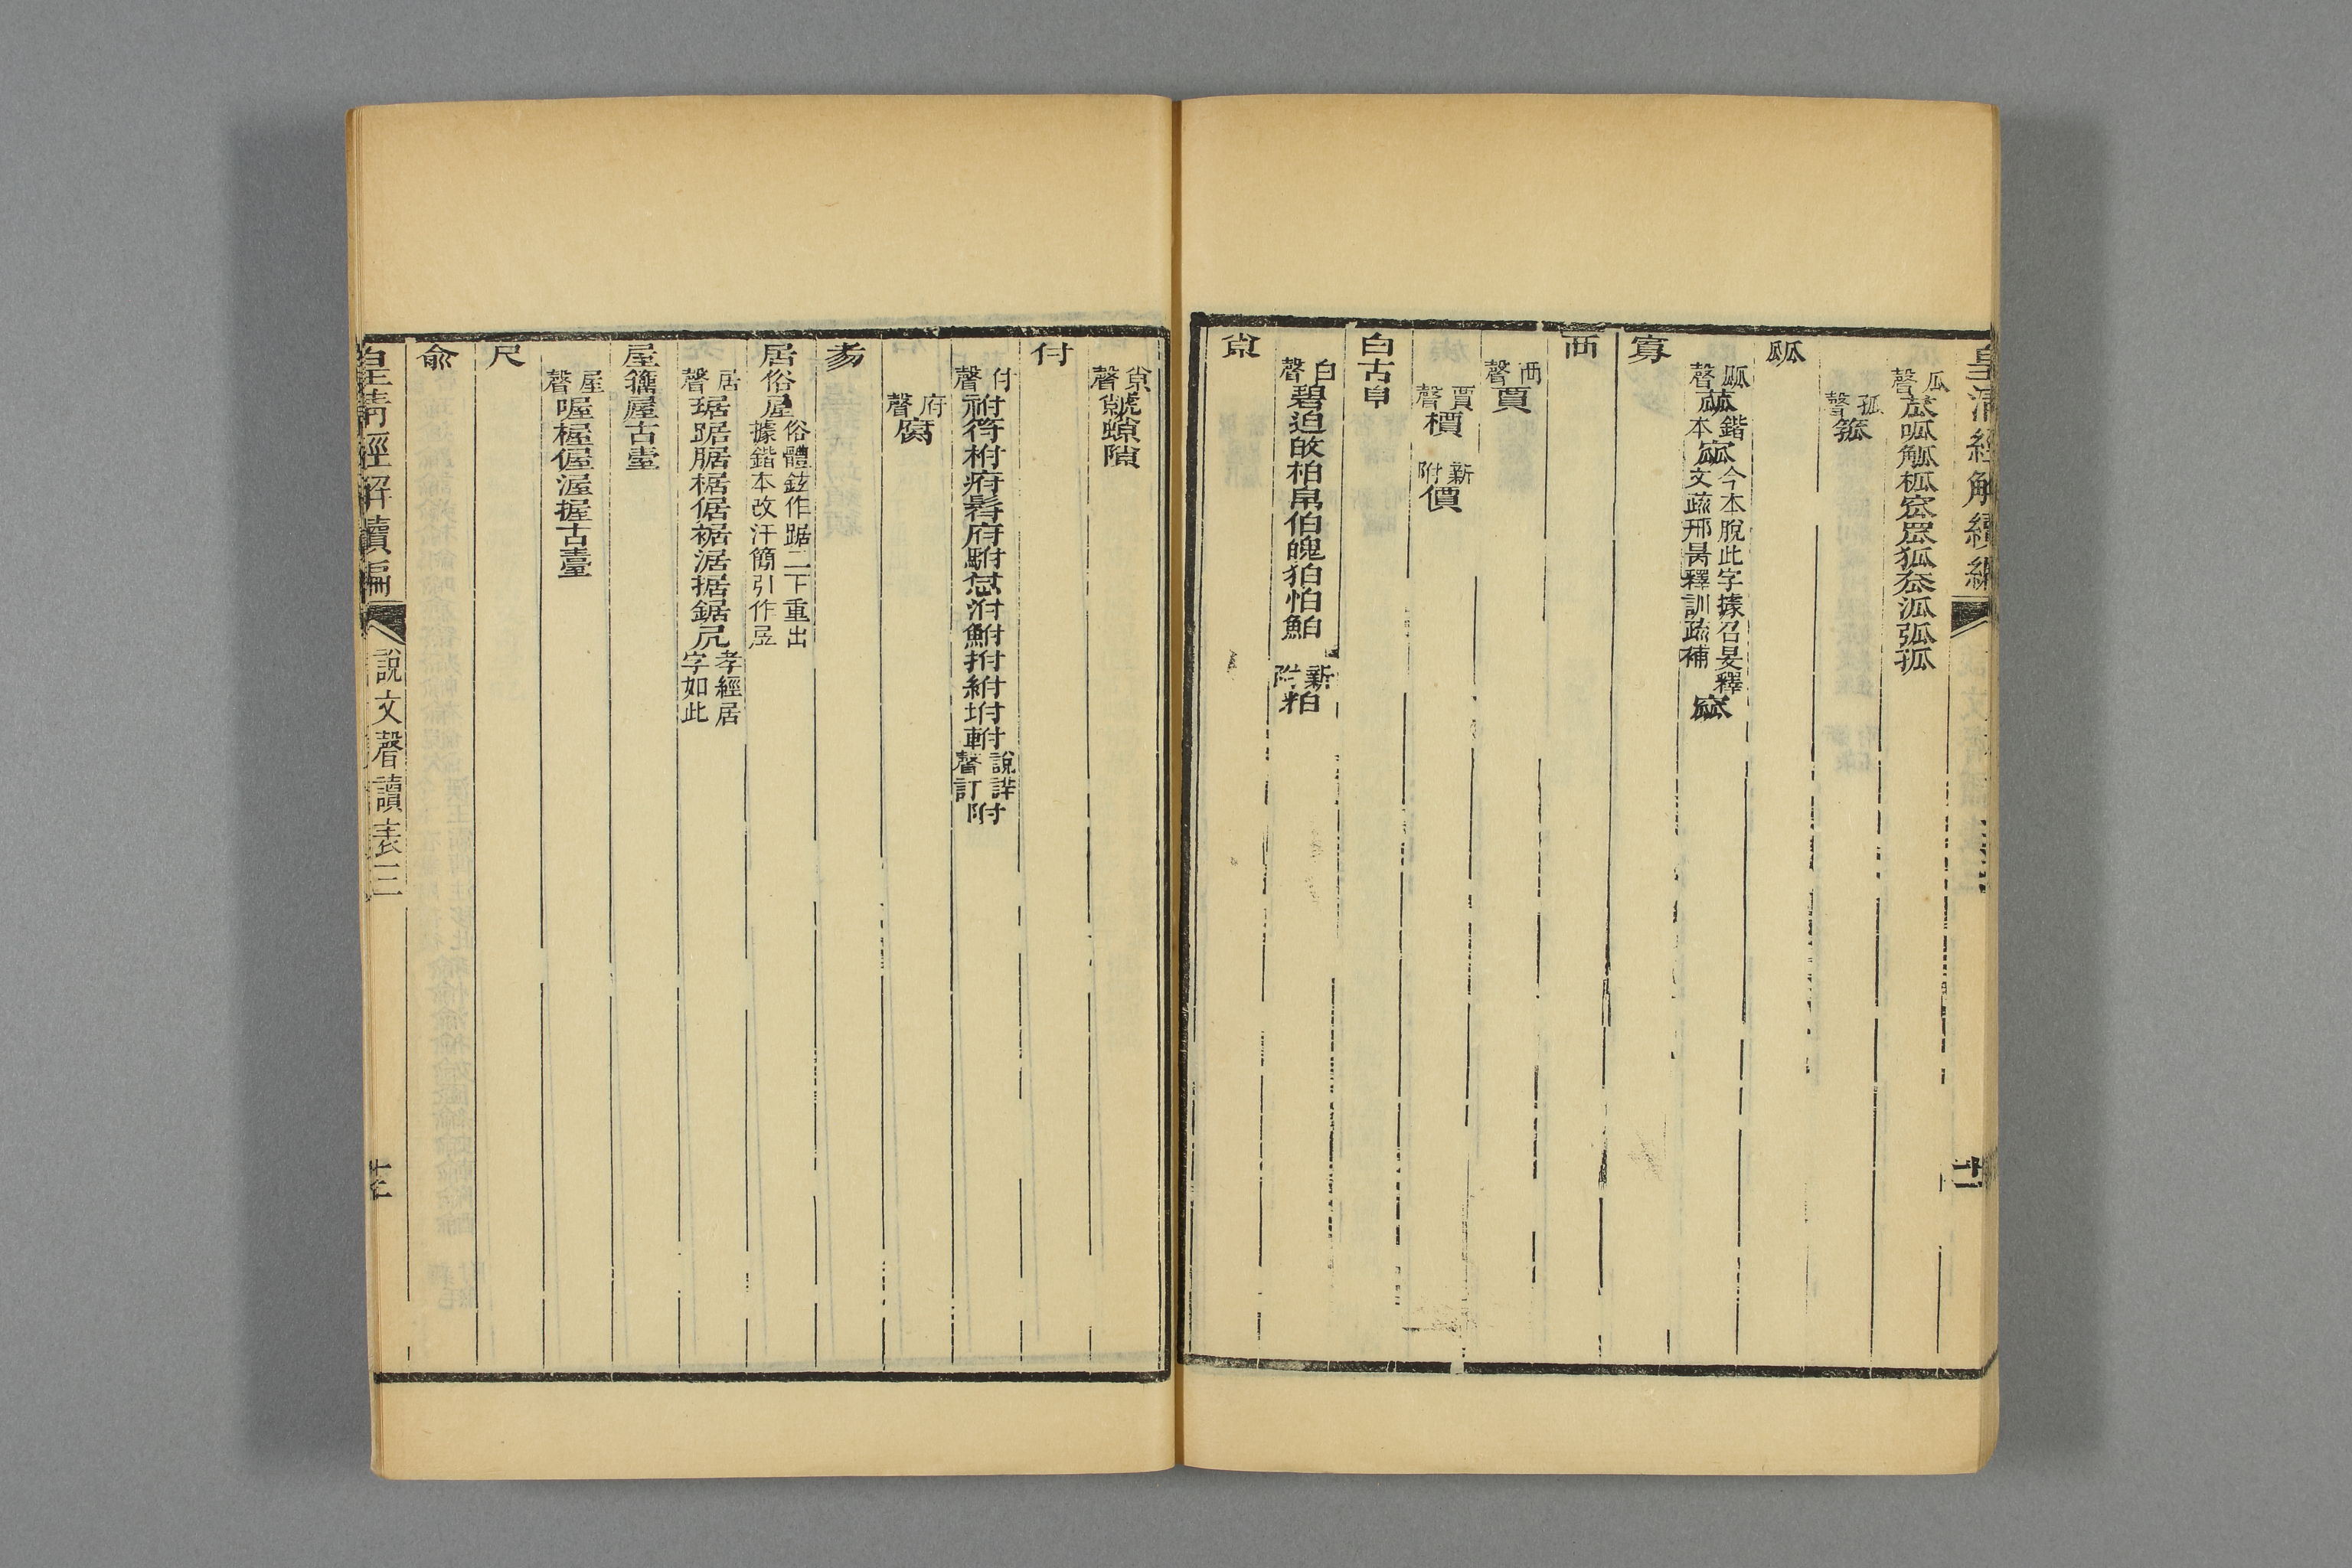 皇清經解續編
瓜聲苽呱觚柧窊罛狐𡘞泓弧孤
孤聲箛
㼌
㼌聲𤬏鍇本窳今本脫此字據召旻釋文疏邢昺釋訓疏補
寡
襾
襾聲賈
賈聲檟 新附價
白古𦣺
白聲碧迫敀柏帛伯皅狛怕鮊 新附粕
𡭴
𡭴聲虩螑隙
付
付聲祔符柎府髴府駙怤泭鮒拊紨坿軵說譌聲訂附
府聲腐
豦
居俗屋俗體鉉作踞二下重出據鍇本改汗簡引作𡰥
居聲琚踞腒椐倨裾涺据鋸凥孝經居字如此
屋籀屋古臺
屋聲喔楃偓渥握古臺
尺
俞
皇清經解續編
說文聲讀表三